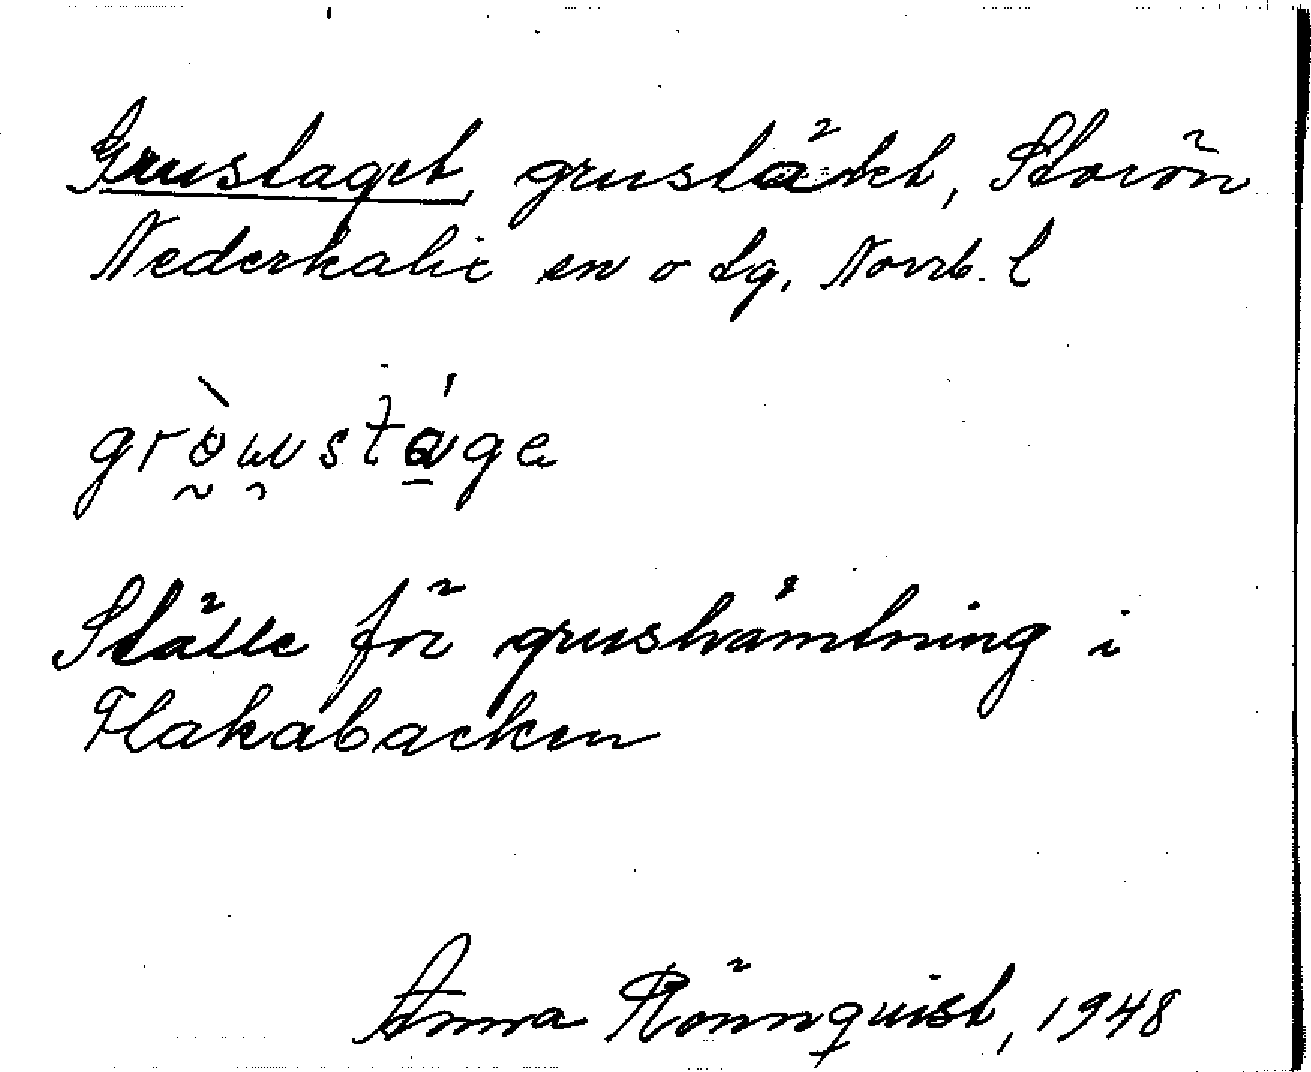 Grustaget, grustäktet, Storön
Nederkalix sn o tg, Norrb. l
gròu̯stága
Ställe för grushämtning i
Flakabacken
Anna Rönnquist, 1948